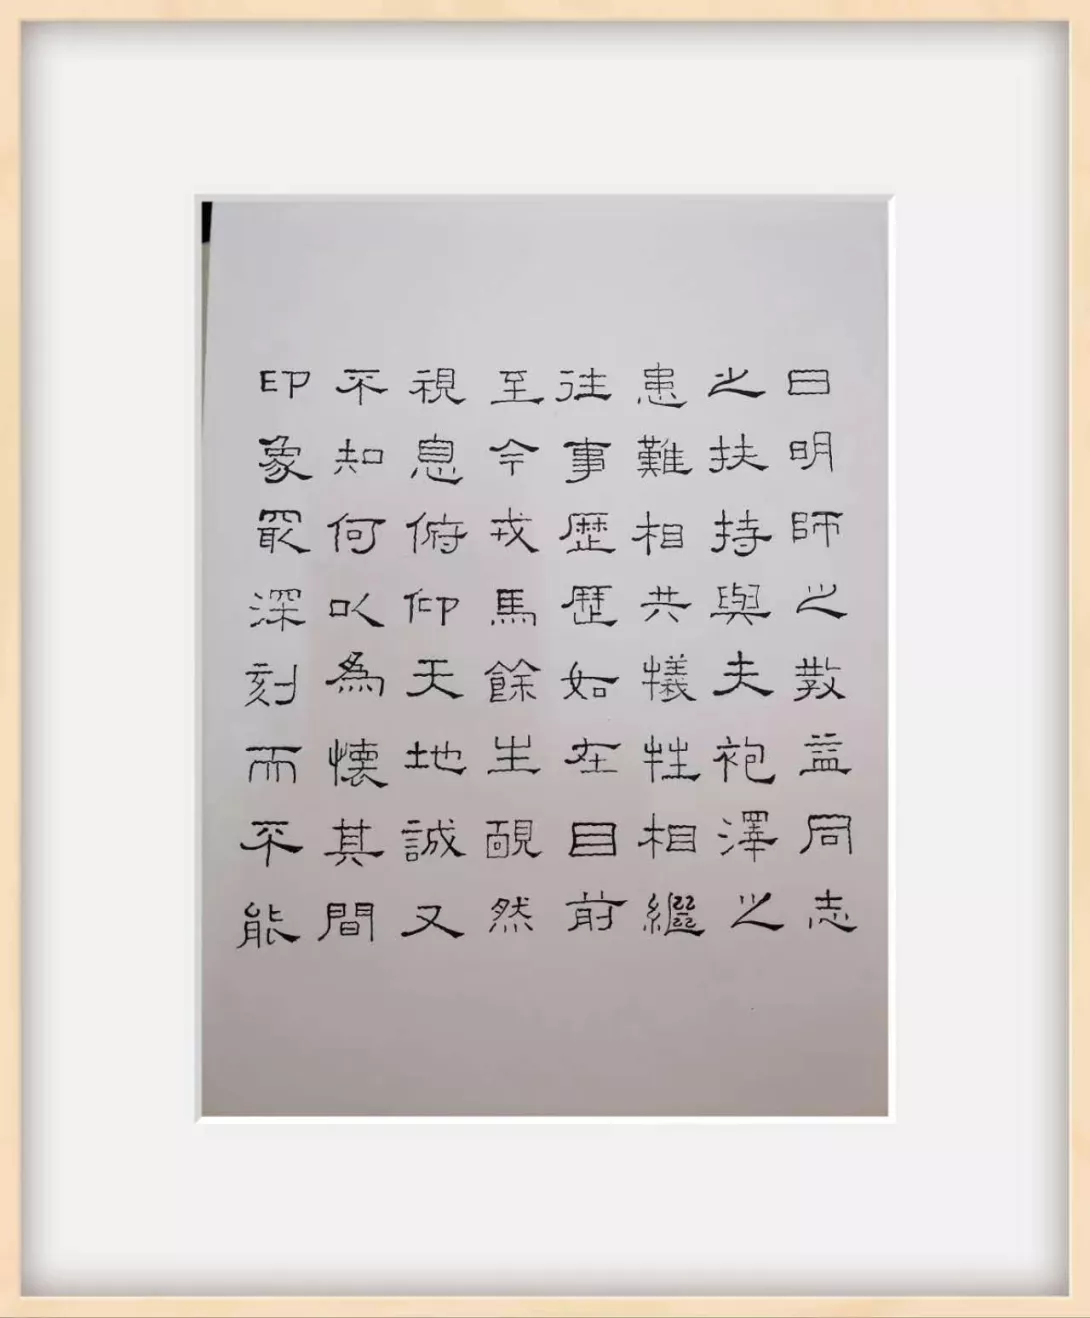 曰明師之教益同志
之扶持與夫袍澤之
患難相共犧牲相繼
往事歷歷如在目前
至今戎馬餘生靦然
視息俯仰天地誠又
不知何以為懷其間
印象最深刻而不能